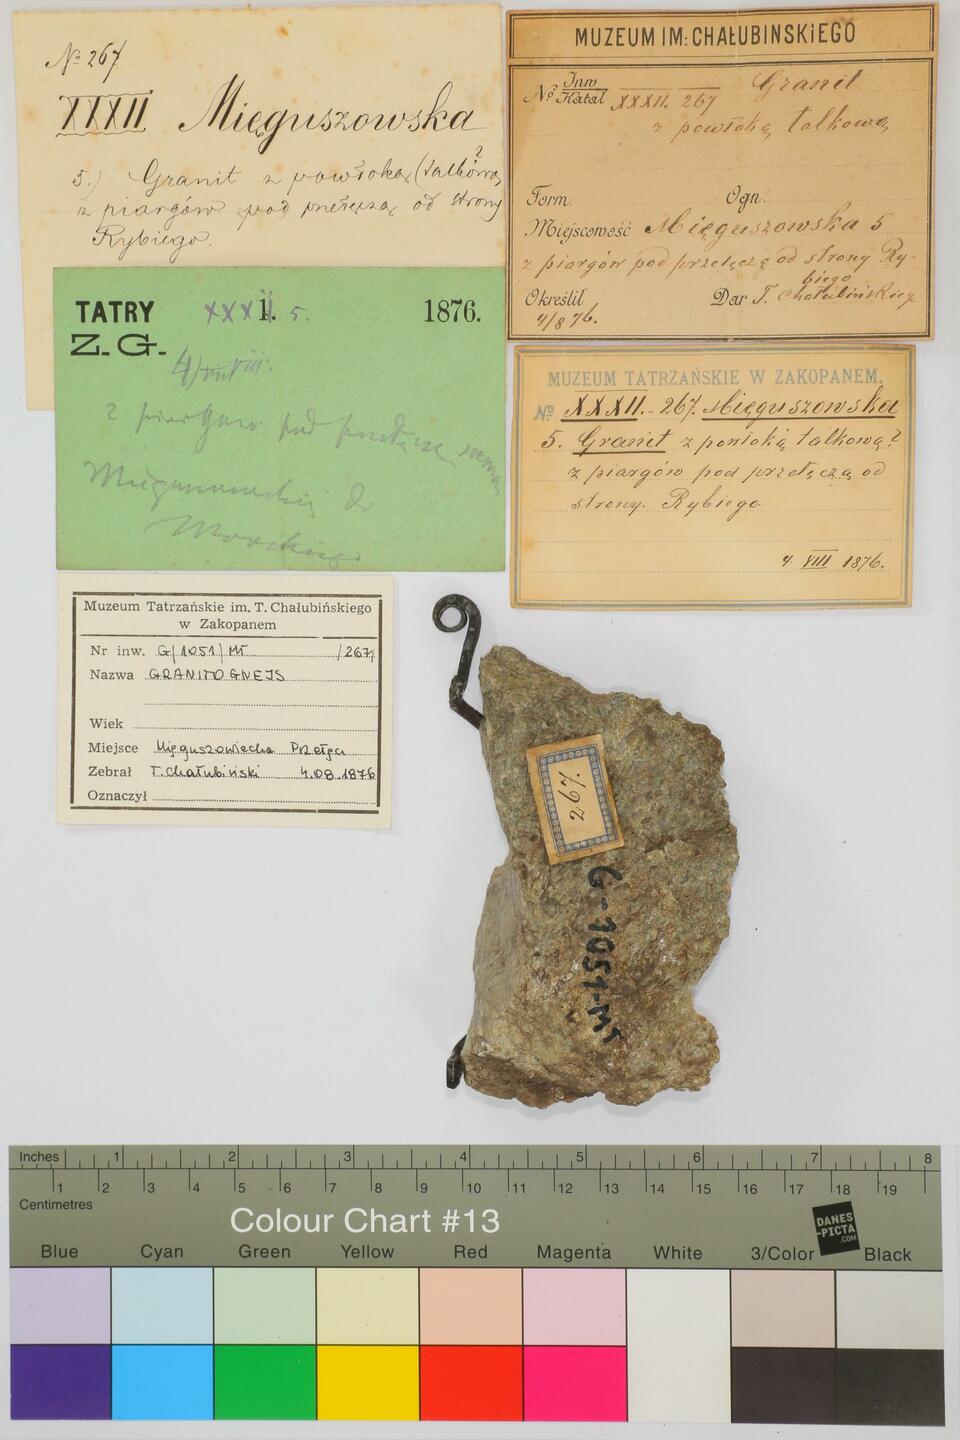 № 267
XXXII Mięguszowska
5.) Granit z powłoką (talkową?
z piargów pod przełęczą od strony
Rybiego.
MUZEUM IM: CHAŁUBIŃSKIEGO
№ Inw Katal XXXII. 267 Granit
z powłoką talkową
Form. Ogn.
Miejscowość Mięguszowska 5
z piargów pod przełęczą od strony Ry-
biego
Określił Dar T. Chałubińskieg
4/8 76.
TATRY XXXII 1. 5. 1876.
Z. G.
4/VIII
z piargów pod przełęczą
Mięguszowską
Morskiego
MUZEUM TATRZAŃSKIE W ZAKOPANEM.
№ XXXII.-267. Mięguszowska
5. Granit z powłoką talkową?
z piargów pod przełęczą od
strony. Rybiego
4 VIII 1876.
Muzeum Tatrzańskie im. T. Chałubińskiego
w Zakopanem
Nr inw. G/1051/MT /267/
Nazwa GRANITOGNEJS
Wiek
Miejsce Mięguszowiecka Przełęcz
Zebrał T. Chałubiński 4.08.1876
Oznaczył
267.
G-1051-MT
Inches 1 2 3 4 5 6 7 8
1 2 3 4 5 6 7 8 9 10 11 12 13 14 15 16 17 18 19
Centimetres
Colour Chart #13
DANES
-PICTA
.COM
Blue Cyan Green Yellow Red Magenta White 3/Color Black